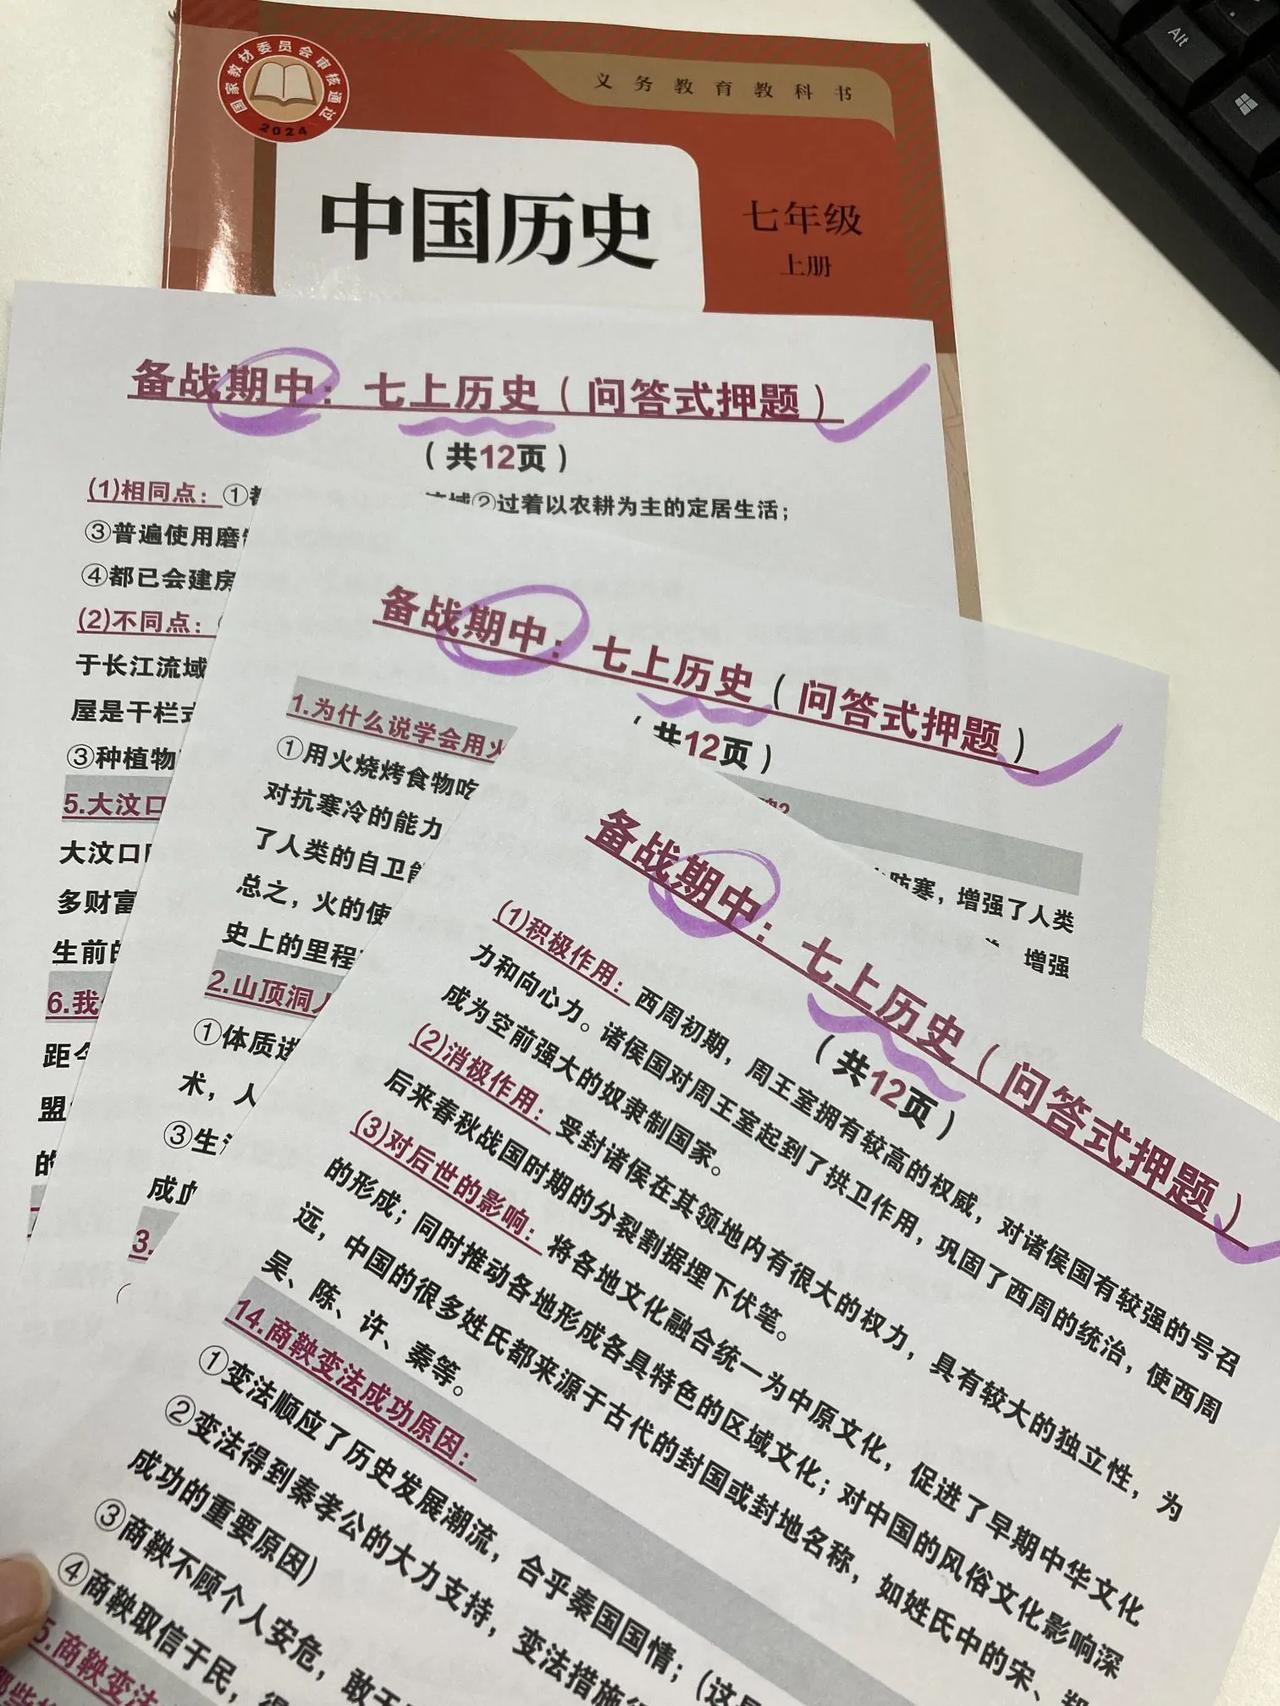 国家教材委员会审核通过
2024
义务教育教科书
中国历史
七年级
上册
备战期中：七上历史（问答式押题）
（共12页）
(1)相同点：①
②过着以农耕为主的定居生活；
③普遍使用磨
④都已会建房
(2)不同点：
于长江流域
屋是干栏式
③种植物
5.大汶口
大汶口
多财富
生前的
6.我
距今
盟
的
备战期中：七上历史（问答式押题）
共12页）
1.为什么说学会用火
①用火烧烤食物吃
防寒，增强了人类
对抗寒冷的能力
增强
了人类的自卫能
总之，火的使
史上的里程
2.山顶洞人
①体质进
术，人
③生
成血
3.
备战期中：七上历史（问答式押题）
（共12页）
(1)积极作用：西周初期，周王室拥有较高的权威，对诸侯国有较强的号召
力和向心力。诸侯国对周王室起到了拱卫作用，巩固了西周的统治，使西周
成为空前强大的奴隶制国家。
(2)消极作用：受封诸侯在其领地内有很大的权力，具有较大的独立性，为
后来春秋战国时期的分裂割据埋下伏笔。
(3)对后世的影响：将各地文化融合统一为中原文化，促进了早期中华文化
的形成；同时推动各地形成各具特色的区域文化；对中国的风俗文化影响深
远，中国的很多姓氏都来源于古代的封国或封地名称，如姓氏中的宋、郑
吴、陈、许、秦等。
14.商鞅变法成功原因：
①变法顺应了历史发展潮流，合乎秦国国情；（这是
②变法得到秦孝公的大力支持，变法措施
成功的重要原因）
③商鞅不顾个人安危，敢于
④商鞅取信于民，得
5.商鞅变法
哪些